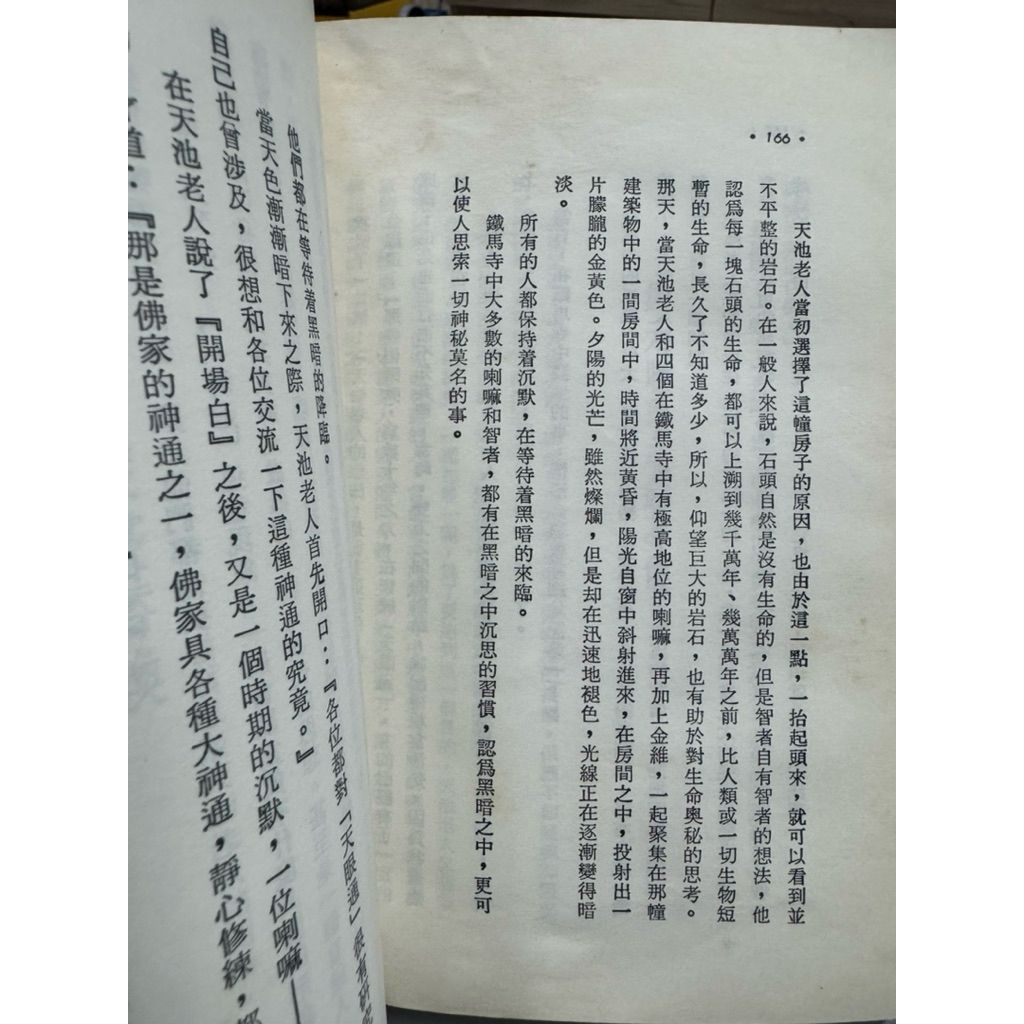 • 166 •
天池老人當初選擇了這幢房子的原因，也由於這一點，一抬起頭來，就可以看到並
不平整的岩石。在一般人來說，石頭自然是沒有生命的，但是智者自有智者的想法，他
認爲每一塊石頭的生命，都可以上溯到幾千萬年、幾萬萬年之前，比人類或一切生物短
暫的生命，長久了不知道多少，所以，仰望巨大的岩石，也有助於對生命奧秘的思考。
那天，當天池老人和四個在鐵馬寺中有極高地位的喇嘛，再加上金維，一起聚集在那幢
建築物中的一間房間中，時間將近黃昏，陽光自窗中斜射進來，在房間之中，投射出一
片朦朧的金黃色。夕陽的光芒，雖然燦爛，但是却在迅速地褪色，光線正在逐漸變得暗
淡。
所有的人都保持着沉默，在等待着黑暗的來臨。
鐵馬寺中大多數的喇嘛和智者，都有在黑暗之中沉思的習慣，認爲黑暗之中，更可
以使人思索一切神秘莫名的事。
他們都在等待着黑暗的降臨。
當天色漸漸暗下來之際，天池老人首先開口：『各位都對「天眼通」很有研究
自己也曾涉及，很想和各位交流一下這種神通的究竟。』
在天池老人說了『開場白』之後，又是一個時期的沉默，一位喇嘛
道：『那是佛家的神通之一，佛家具各種大神通，靜心修練，都